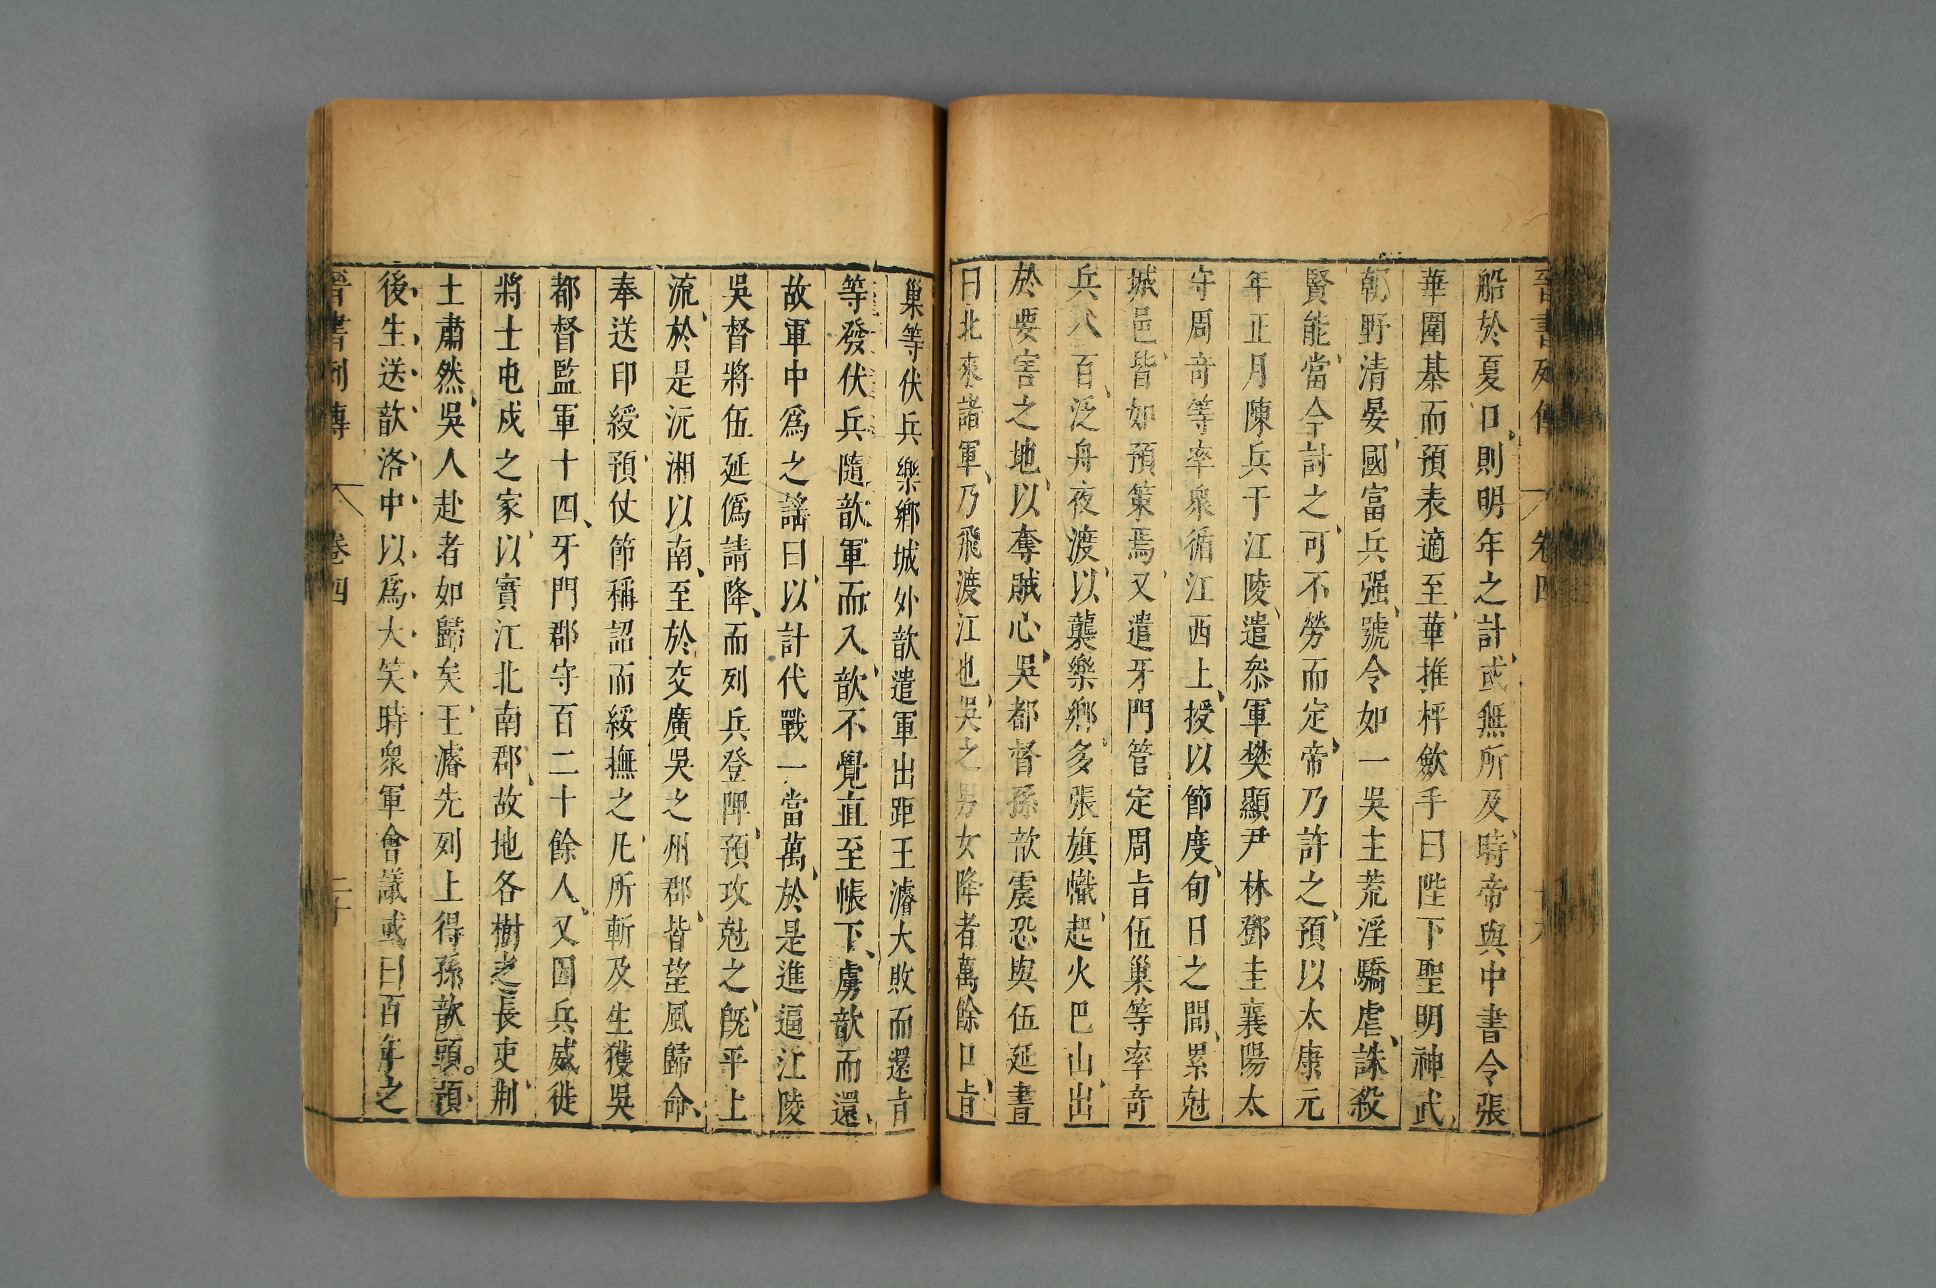 晉書列傳 卷四
船於夏口則明年之計或無所及時帝與中書令張
華圍棊而預表適至華推枰斂手曰陛下聖明神武
朝野清晏國富兵强號令如一吳主荒淫驕虐誅殺
賢能當今討之可不勞而定帝乃許之預以太康元
年正月陳兵于江陵遣叅軍樊顯尹林鄧圭襄陽太
守周奇等率衆循江西上授以節度旬日之間累尅
城邑皆如預策焉又遣牙門管定周旨伍巢等率奇
兵八百泛舟夜渡以襲樂鄉多張旗幟起火巴山出
於要害之地以奪賊心吳都督孫歆震恐與伍延書
曰北來諸軍乃飛渡江也吳之男女降者萬餘口旨
巢等伏兵樂鄉城外歆遣軍出距王濬大敗而還旨
等發伏兵隨歆軍而入歆不覺直至帳下虜歆而還
故軍中爲之謠曰以計代戰一當萬於是進逼江陵
吳督將伍延僞請降而列兵登陴預攻尅之旣平上
流於是沅湘以南至於交廣吳之州郡皆望風歸命
奉送印綬預仗節稱詔而綏撫之凡所斬及生獲吳
都督監軍十四牙門郡守百二十餘人又因兵威徙
將士屯戍之家以實江北南郡故地各樹之長吏荆
土肅然吳人赴者如歸矣王濬先列上得孫歆頭預
後生送歆洛中以爲大笑時衆軍會議或曰百年之
晉書列傳 卷四 二十